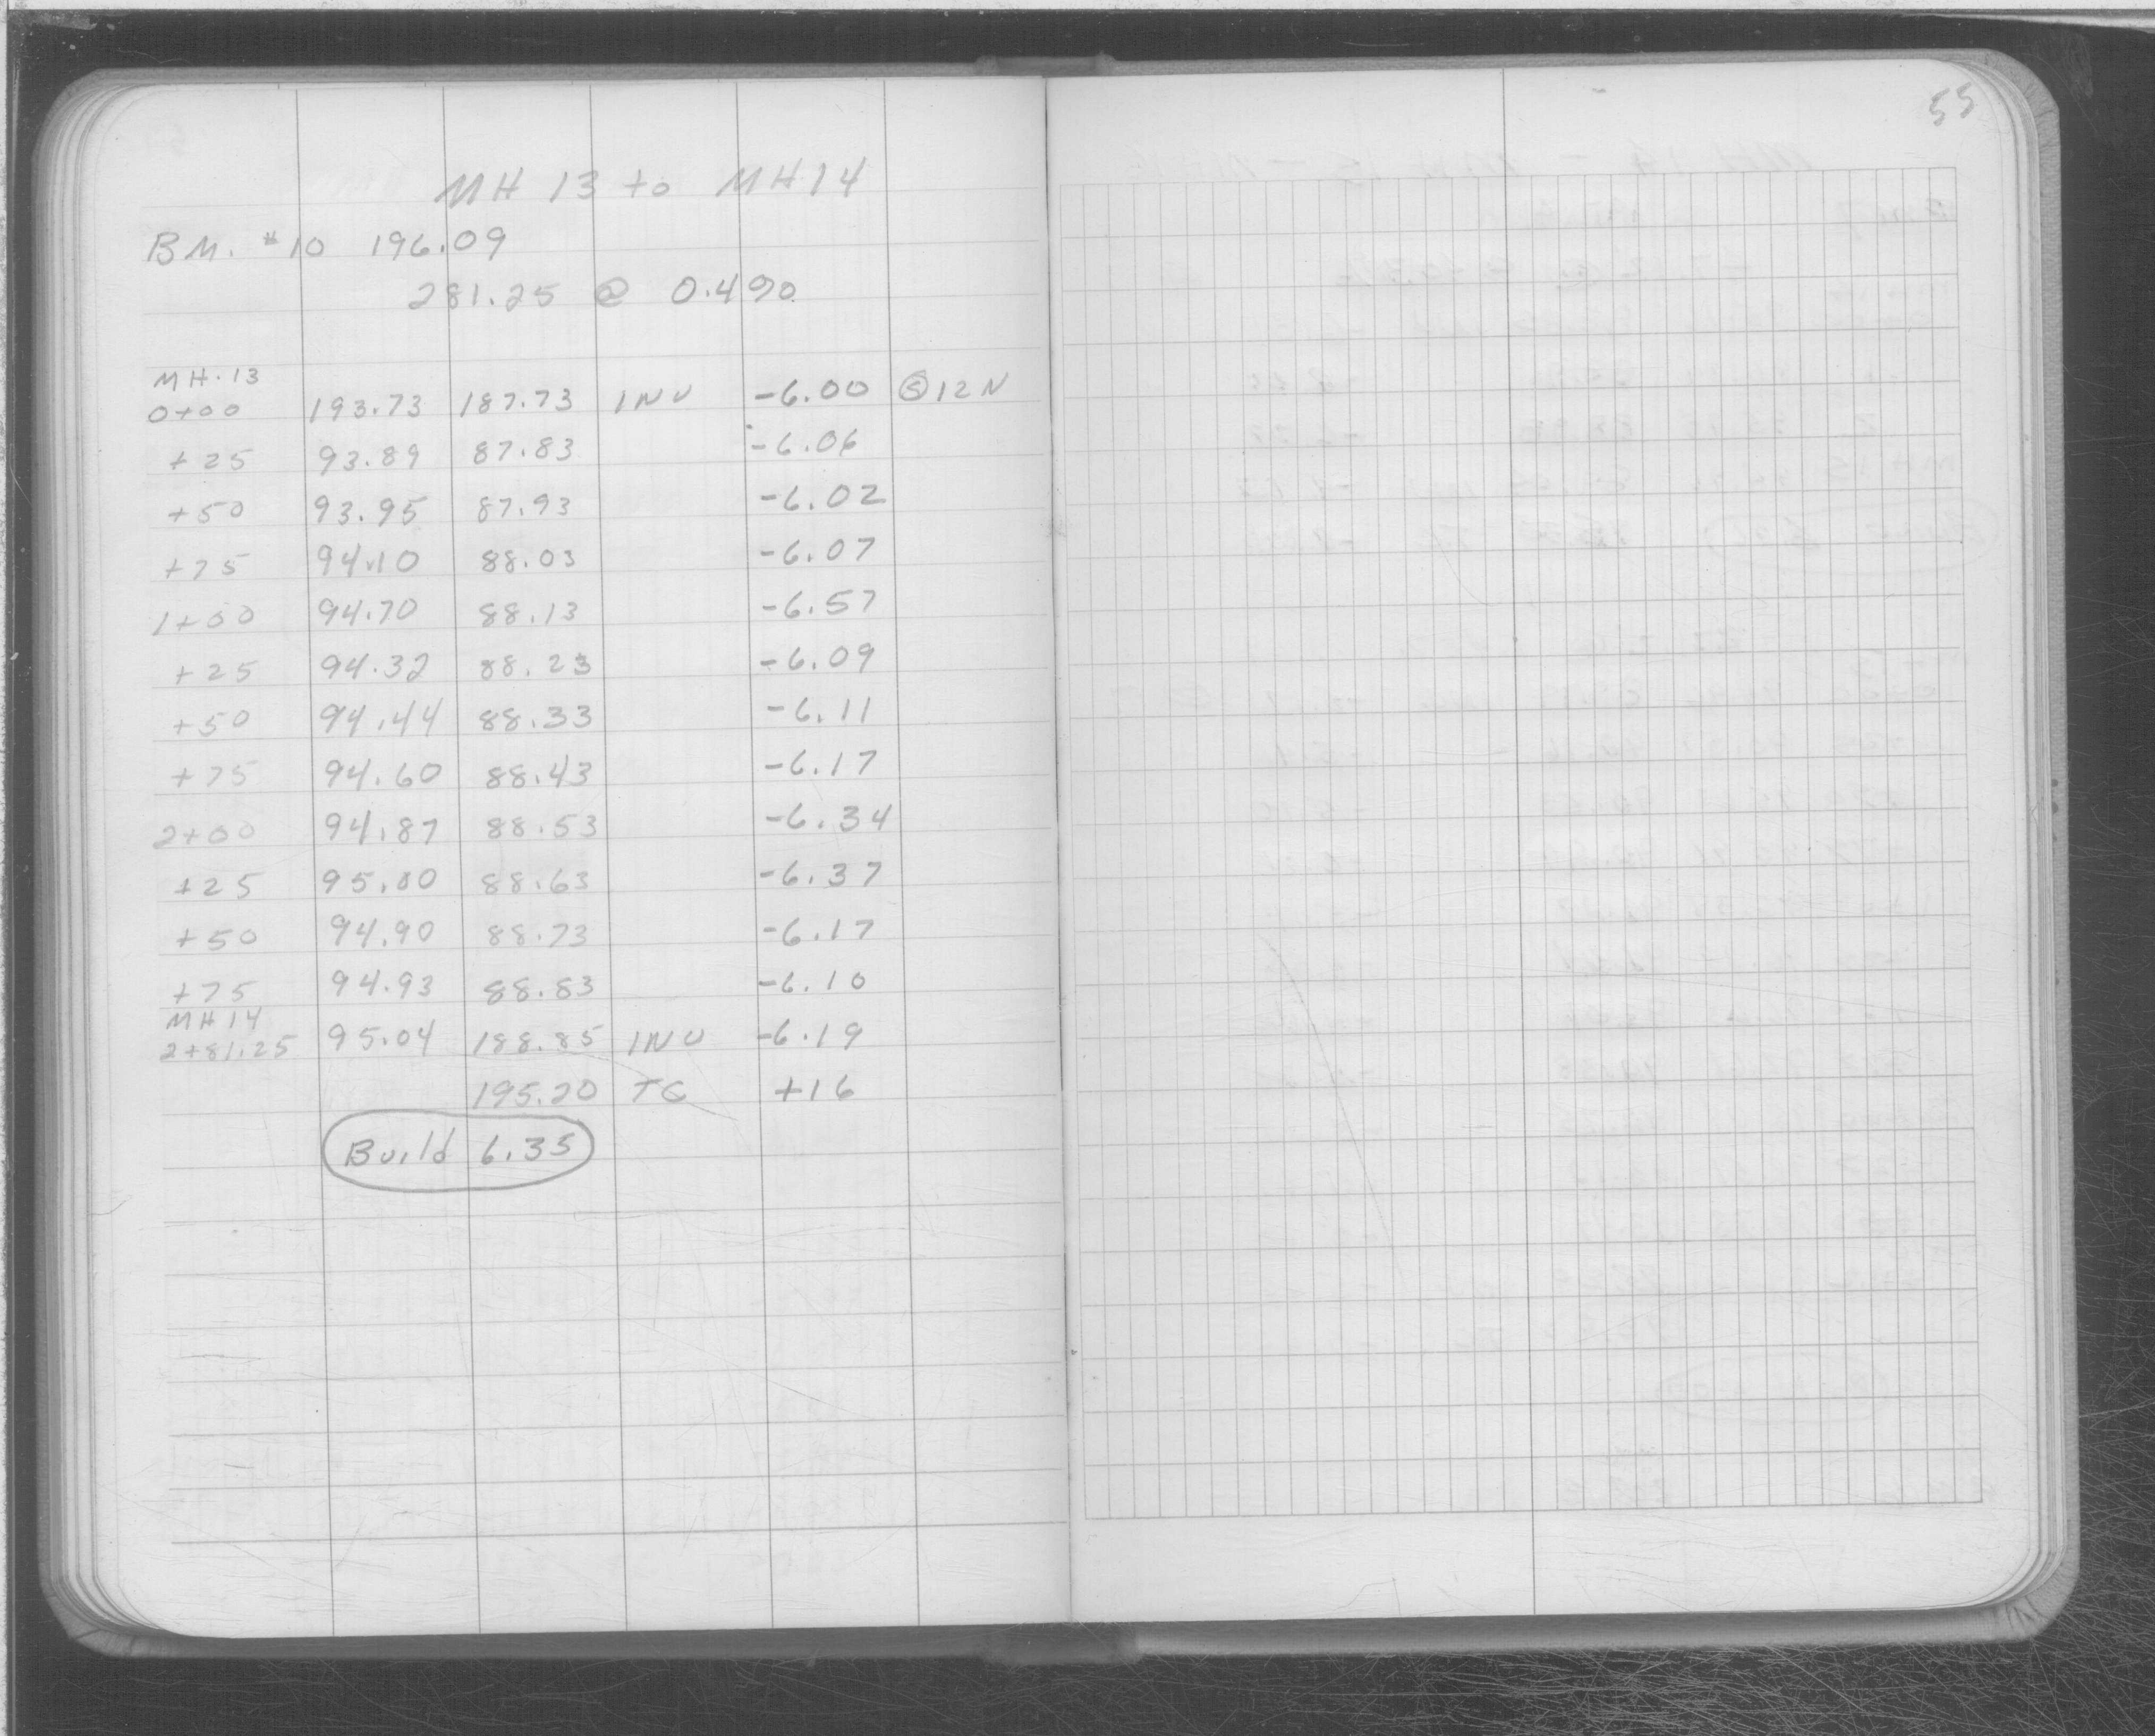 55
MH 13 to MH14
BM. #10 196.09
281.25 @ 0.490
MH.13
0+00 193.73 187.73 INV -6.00 Ⓢ12N
+25 93.89 87.83 -6.06
+50 93.95 87.93 -6.02
+75 94.10 88.03 -6.07
1+00 94.70 88.13 -6.57
+25 94.32 88.23 -6.09
+50 94.44 88.33 -6.11
+75 94.60 88.43 -6.17
2+00 94.87 88.53 -6.34
+25 95.00 88.63 -6.37
+50 94.90 88.73 -6.17
+75 94.93 88.83 -6.10
MH14
2+81.25 95.04 188.85 INV -6.19
195.20 TC +16
Build 6.35